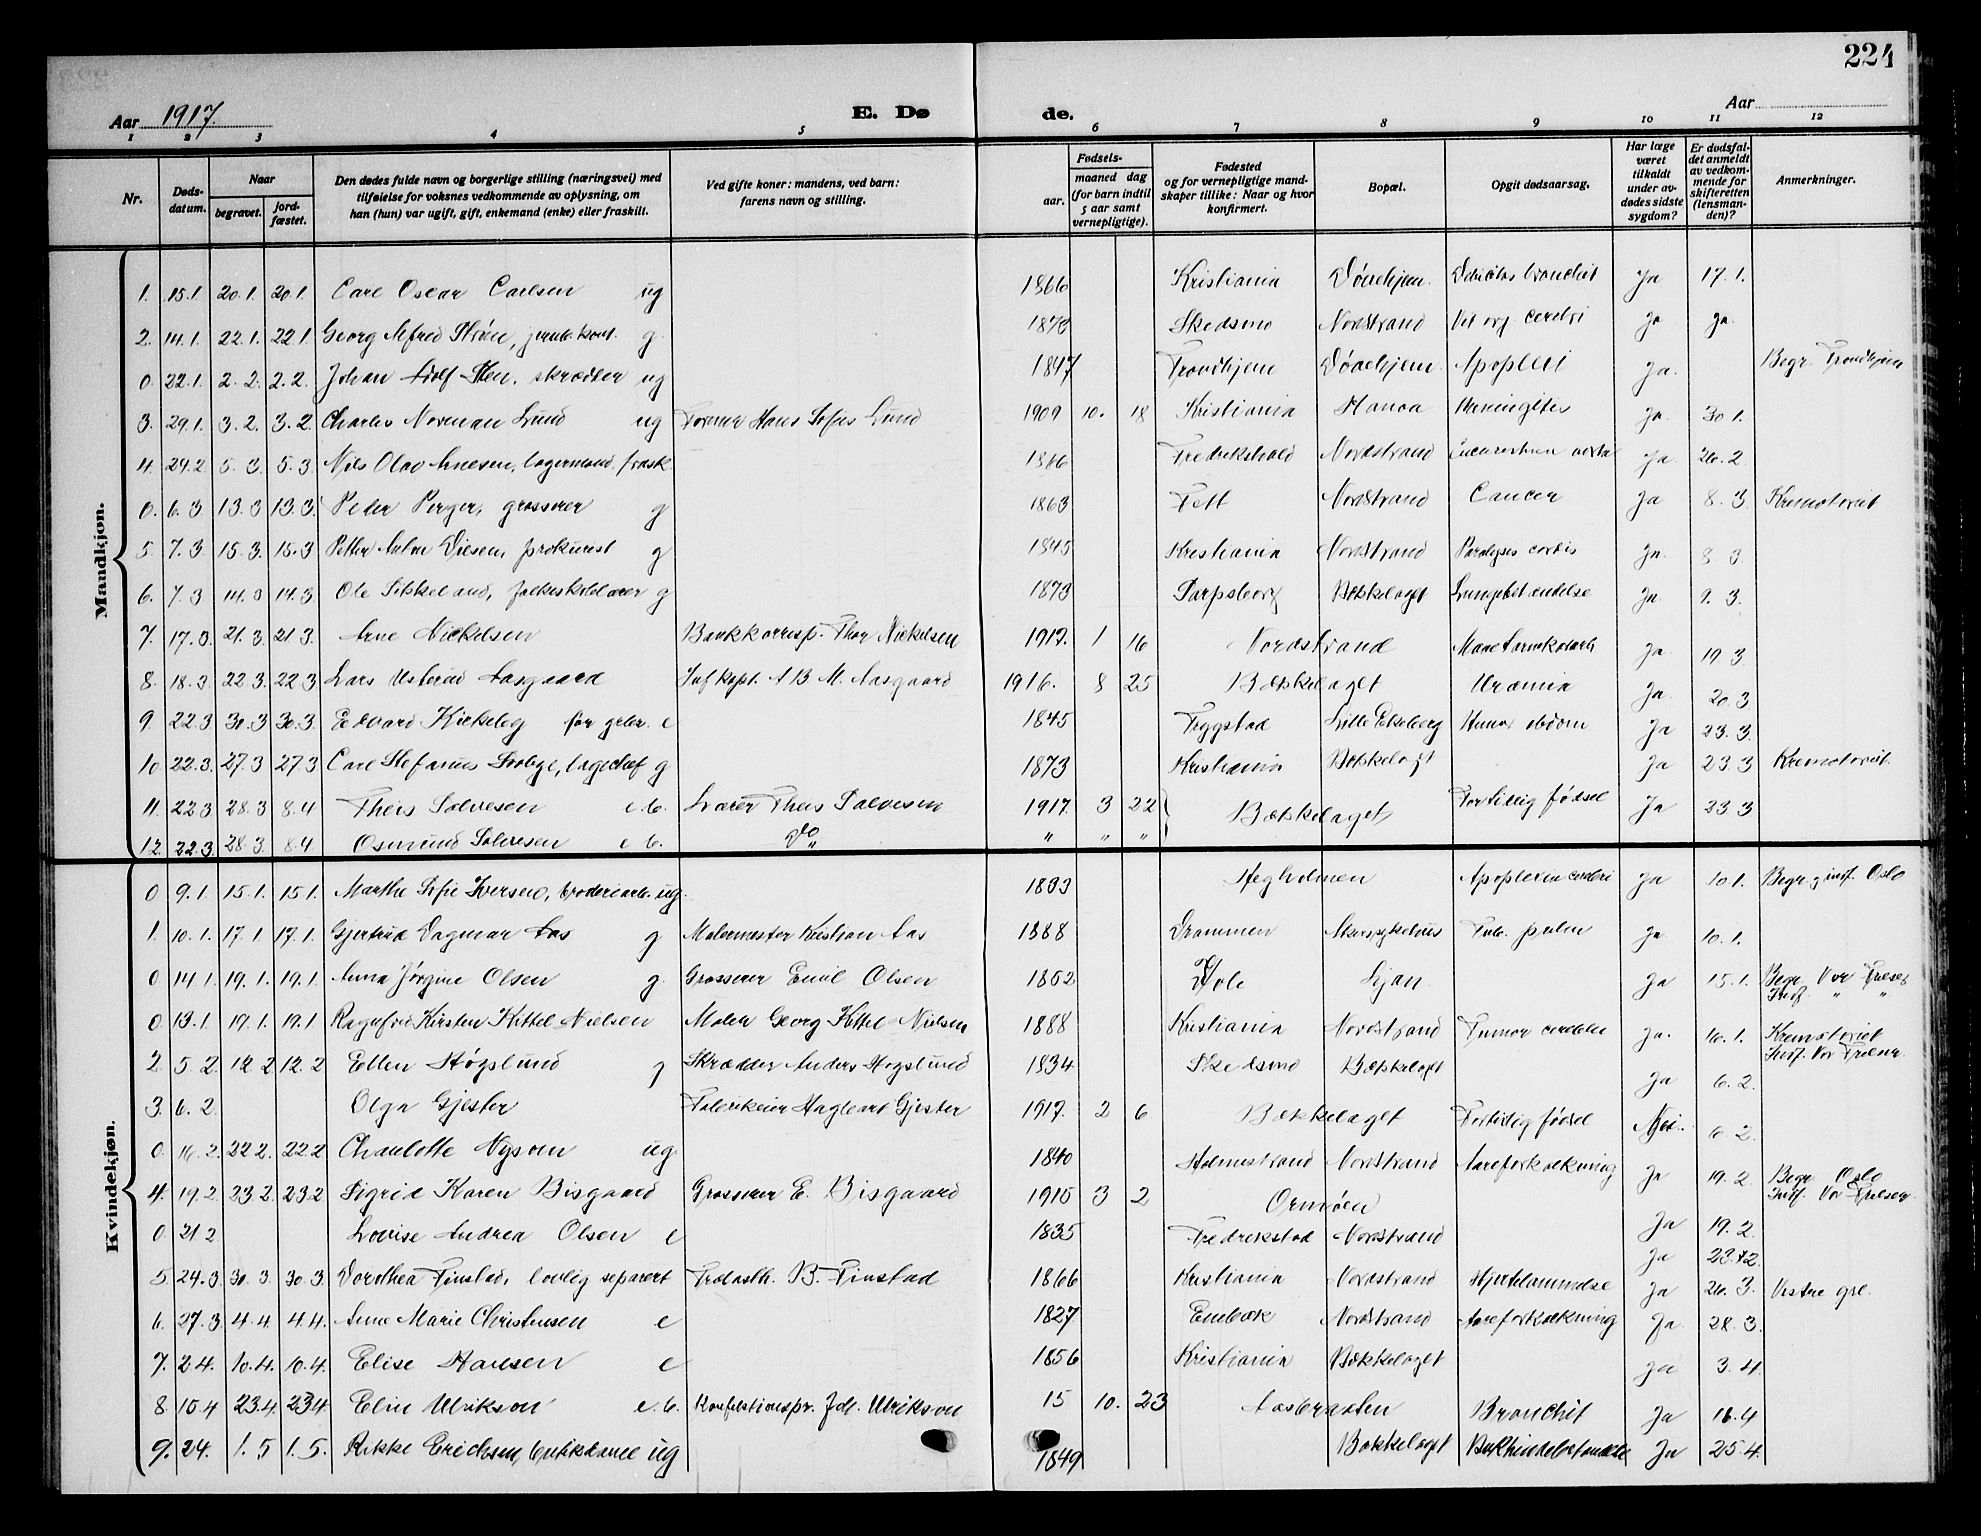 224
Aar 1917. E. Døde. Aar
1 2 3 4 5 6 7 8 9 10 11 12
Nr. Døds-datum. Naar begravet. jord-fæstet. Den dødes fulde navn og borgerlige stilling (næringsvei) med tilføielse for voksnes vedkommende av oplysning, om han (hun) var ugift, gift, enkemand (enke) eller fraskilt. Ved gifte koner: mandens, ved barn: farens navn og stilling. Fødsels- aar. maaned dag (for barn indtil 5 aar samt vernepligtige). Fødested og for vernepligtige mandskaper tillike: Naar og hvor konfirmert. Bopæl. Opgit dødsaarsag. Har læge været tilkaldt under avdødes sidste sygdom? Er dødsfaldet anmeldt av vedkommende for skifteretten (lensmanden)? Anmerkninger.
Mandkjøn.
1. 15.1. 20.1. 20.1. Carl Oscar Carlsen ug 1866 Kristiania Døvehjem. Ja 17.1.
2. 14.1. 22.1. 22.1. Georg Alfred g. 1873 Skedsmo Nordstrand cerebri Ja Ja.
0. 22.1. 2.2. 2.2. Johan Adolf Sten, skrædder ug 1847 Trondhjem Døvehjem Apoplexi Ja. Begr. Trondhjem
3. 29.1. 3.2. 3.2. Charles Norman Lund ug Former Hans Sofus Lund 1909 10. 18 Kristiania Meningitis Ja. 30.1.
4. 24.2 5.3. 5.3 Nils Olav Arnesen, lagermand, frask. 1866 Fredrikshald Nordstrand Ja. 26.2.
0. 6.3 13.3 13.3. Peter Berger, grosserer g 1863 Fett Nordstrand Cancer Ja 8.3. Krematoriet
5. 7.3 15.3. 15.3 Petter Anton Diesen, prokurist g 1845 Kristiania Nordstrand Paralysis cordis Ja. 8 3
6. 7.3 14.3 14.3 Ole g 1873 Sarpsborg Bækkelaget Lungebetændelse Ja. 9.3.
7. 17.3. 21.3 21.3. Arne Nickelsen Bankkorresp. Thor Nickelsen 1917. 1 16 Nordstrand Ja. 19 3
8. 18.3 22.3. 22.3 Lars Usterud Aasgaard Inf kapt. A B M. Aasgaard 1916. 8 25 Bækkelaget Uræmia Ja. 20.3
9. 22.3 30.3 30.3. Edvard Kirkeby e 1845 Trøgstad Lille Ekeberg Ja 23.3.
10 22.3. 27.3 27.3 Carl Stefanus Solbge, lagerchef g 1873 Kristiania Bækkelaget Ja 23.3 Krematoriet.
11. 22.3 28.3 8.4 Theis Salvesen e.b. Lærer Theis Salvesen 1917. 3 22 Bækkelaget, For tidlig fødsel Ja 23 3
12. 22.3. 28.3. 8.4 Osmund Salvesen e b. Do " " "
Kvindekjøn.
0 9.1. 15.1. 15.1. Marthe Sofie Iversen, broderiarb. ug. 1893 Hegholmen Apoplexia cerebri Ja 10.1. Begr. g inf. Oslo
1. 10.1. 17.1 17.1. Gjertrud Dagmar Aas g Malermester Kristian Aas 1888 Drammen Akers sykehus Tub. pulm Ja 10.1.
0 14.1. 19.1. 19.1. Anna Jørgine Olsen g. Grosserer Emil Olsen 1852 Hole Ljan Ja 15.1. Begr. Vor Frelser Indf. " "
0. 13.1. 19.1. 19.1 Ragnfrid Kirsten Kittel Nielsen Maler Georg Kittel Nielsen 1888 Kristiania Nordstrand Tumor cerebri Ja. 16.1. Krematoriet Indf. Vor Frelser.
2. 5 2. 12 2 12. 2 Ellen Høgslund g Skrædder Anders Høgslund 1834 Skedsmo Bækkelaget Ja 6.2.
3. 6.2. Olga Gjester Fabrikeier Hagbart Gjester 1917. 2 6 Bækkelaget For tidlig fødsel Nei. 6.2.
0. 16.2. 22 2. 22 2 Charlotte Nysom ug. 1840 Holmestrand Nordstrand Aareforkalkning Ja 19.2. Begr. Oslo Indf. Vor Frelser.
4. 19.2. 23 2. 23 2 Sigrid Karen Bisgaard Grosserer E. Bisgaard 1915 3 2 Ormøen Ja 19.2.
0. 21 2 Lovise Andrea Olsen e 1835 Fredrikstad Nordstrand Ja
5. 24.3. 30.3. 30.3 Dorothea Finstad, lovlig separert Trælasth. B. Finstad 1866 Kristiania Nordstrand Hjertelammelse Ja 26.3. Vestre grl.
6. 27.3 4.4. 4.4. Anne Marie Christensen e 1827 Enebak Nordstrand Aareforkalkning Ja 28.3.
7. 2.4. 10.4. 10.4. Elise Hansen e 1856 Kristiania Bækkelaget Ja 3.4.
8. 15.4 23.4. 23.4. Elin Ulrikson e.b. Konfektionspr. Joh. Ulrikson 15 10. 23 Aasbraaten Bronchit Ja 16.4
9. 24. 1.5 1.5. Rikke Erichsen, ug 1849 Bækkelaget Ja 25.4.